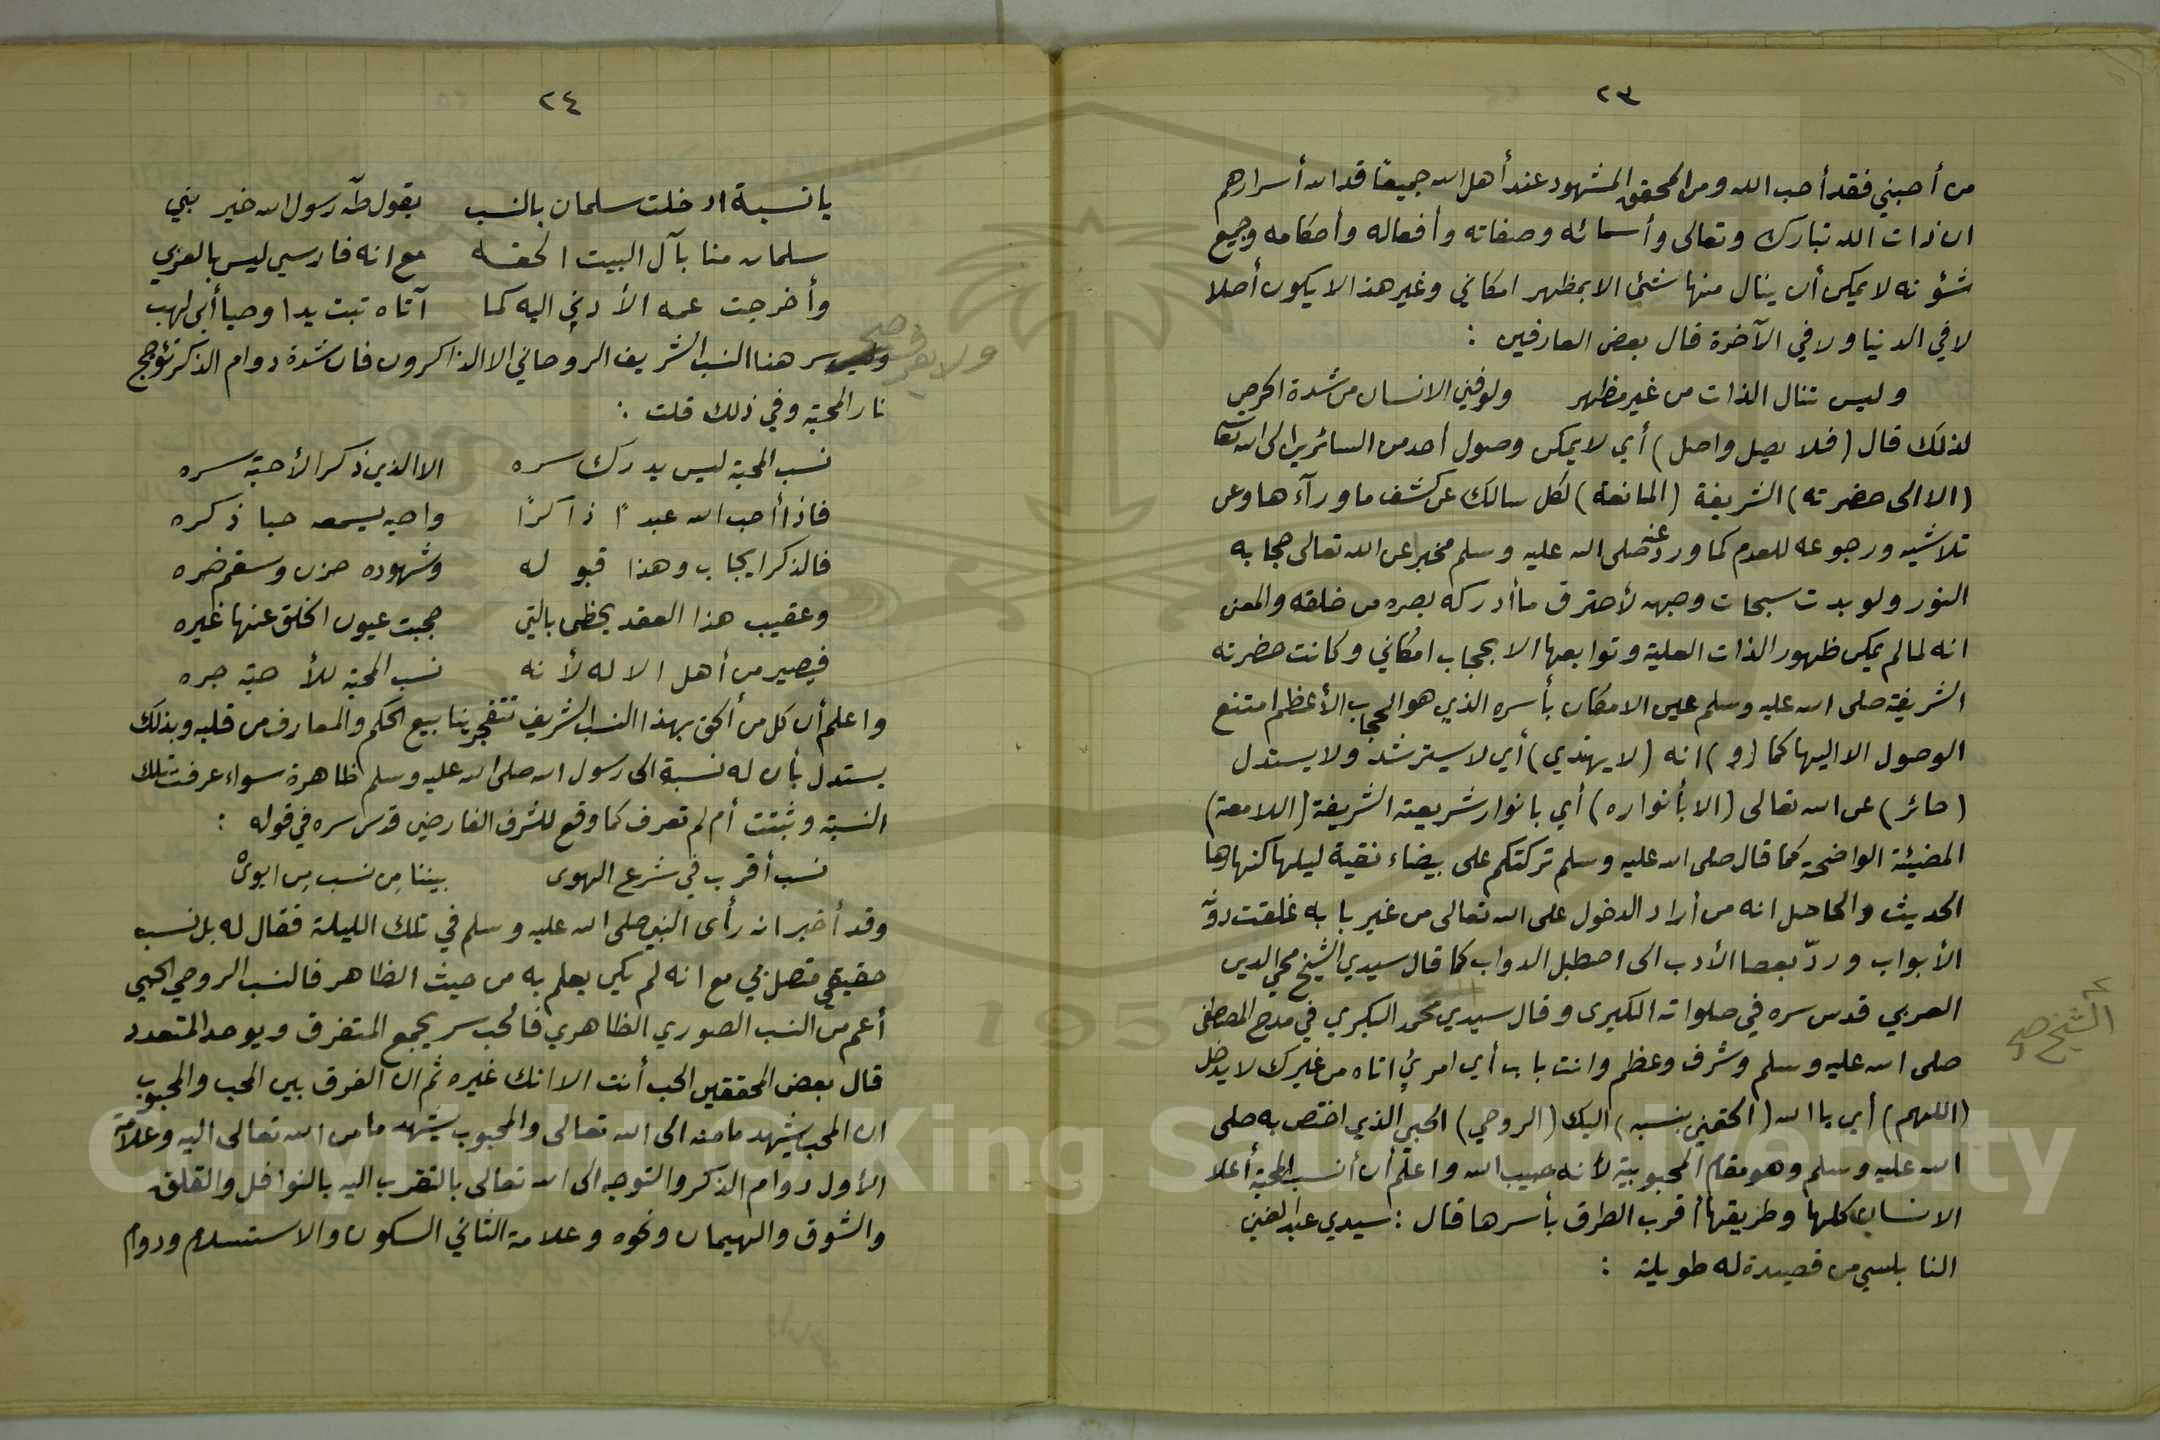 ٢٣
من أحبني فقد أحب الله ومن المحقق المشهود عند أهل الله جميعًا قدس الله أسرارهم
ان ذات الله تبارك وتعالى وأسمائه وصفاته وأفعاله وأحكامه وجميع
شؤنه لا يمكن أن ينال منها شئ الا بمظهر امكاني وغير هذا لا يكون أصلا
لا في الدنيا ولا في الآخرة قال بعض العارفين :
وليس تنال الذات من غير مظهر ولو فني الانسان من شدة الحرص
لذلك قال (فلا يصل واصل) أي لا يمكن وصول أحد من السائرين الى الله تعالى
(الا الى حضرته) الشريفة (المانعة) لكل سالك عن كشف ما ورآءها وعن
تلاشيه ورجوعه للعدم كما ورد عنه صلى الله عليه وسلم مخبرا عن الله تعالى حجابه
النور ولو بدت سبحات وجهه لأحترق ما أدركه بصره من خلقه والمعنى
انه لما لم يمكن ظهور الذات العلية وتوابعها الا بحجاب امكاني وكانت حضرته
الشريفة صلى الله عليه وسلم عين الامكان بأسره الذي هو الحجاب الأعظم امتنع
الوصول الا اليها كما (و) انه (لا يهتدي) أي لا يسترشد ولا يستدل
(حائر) عن الله تعالى (الا بأنواره) أي بانوار شريعته الشريفة (اللامعة)
المضيئة الواضحة كما قال صلى الله عليه وسلم تركتكم على بيضاء نقية ليلها كنهارها
الحديث والحاصل انه من أراد الدخول على الله تعالى من غير بابه غلقت دونه
الأبواب وردّ بعصا الأدب الى اصطبل الدواب كما قال سيدي الشيخ محي الدين
العربي قدس سره في صلواته الكبرى وقال سيدي محمد البكري في مدح المصطفى
الشيخ صح
صلى الله عليه وسلم وشرف وعظم وانت باب أي امرئ اتاه من غيرك لا يدخل
(اللهم) أي يا الله (الحقني بنسبه) اليك (الروحي) الحبي الذي اختص به صلى
الله عليه وسلم وهو مقام المحبوبية لأنه حبيب الله واعلم أن أنسب المحبة أعلا
الانساب كلها وطريقها أقرب الطرق بأسرها قال : سيدي عبد الغني
النابلسي من قصيدة له طويلة :
٢٤
يا نسبة ادخلت سلمان بالنسب بقول طه رسول الله خير نبي
سلمان منا بآل البيت الحقه مع انه فارسي ليس بالعربي
وأخرجت عمه الأدني اليه كما آتاه تبت يدا وحيا أبى لهب
ولا يعرف صح
سر هذا النسب الشريف الروحاني الا الذاكرون فان شدة دوام الذكر تؤجج
نار المحبة وفي ذلك قلت :
نسب المحبة ليس يدرك سره الا الذي ذكر الأحبة سره
فاذا أحب الله عبدًا ذاكرًا واحبه يسمعه حبا ذكره
فالذكر ايجاب وهذا قبوله وشهوده حزن وسقم ضره
وعقيب هذا العقد يحظى بالتي حجبت عيون الخلق عنها غيره
فيصير من أهل الاله لأنه نسب المحبة للأحبة جره
واعلم أن كل من ألحق بهذا النسب الشريف تتفجر ينابيع الحكم والمعارف من قلبه وبذلك
يستدل بأن له نسبة الى رسول الله صلى الله عليه وسلم ظاهرة سواء عرفت تلك
النسبة وثبتت أم لم تعرف كما وقع للشرف الفارضي قدس سره في قوله :
نسب أقرب في شرع الهوى بيننا من نسب من ابوى
وقد أخبر انه رأى النبي صلى الله عليه وسلم في تلك الليلة فقال له بل نسب
حقيقي متصل بي مع انه لم يكن يعلم به من حيث الظاهر فالنسب الروحي الحبي
أعم من النسب الصوري الظاهري فالحب سر يجمع المتفرق ويوحد المتعدد
قال بعض المحققين الحب أنت الا انك غيره ثم ان الفرق بين المحب والمحبوب
ان المحب يشهد ما منه الى الله تعالى والمحبوب يشهد ما من الله تعالى اليه وعلامة
الأول دوام الذكر والتوجه الى الله تعالى بالتقرب اليه بالنوافل والقلق
والشوق والهيمان ونحوه وعلامة الثاني السكون والاستسلام ودوام
1957
Copyright © King Saud University